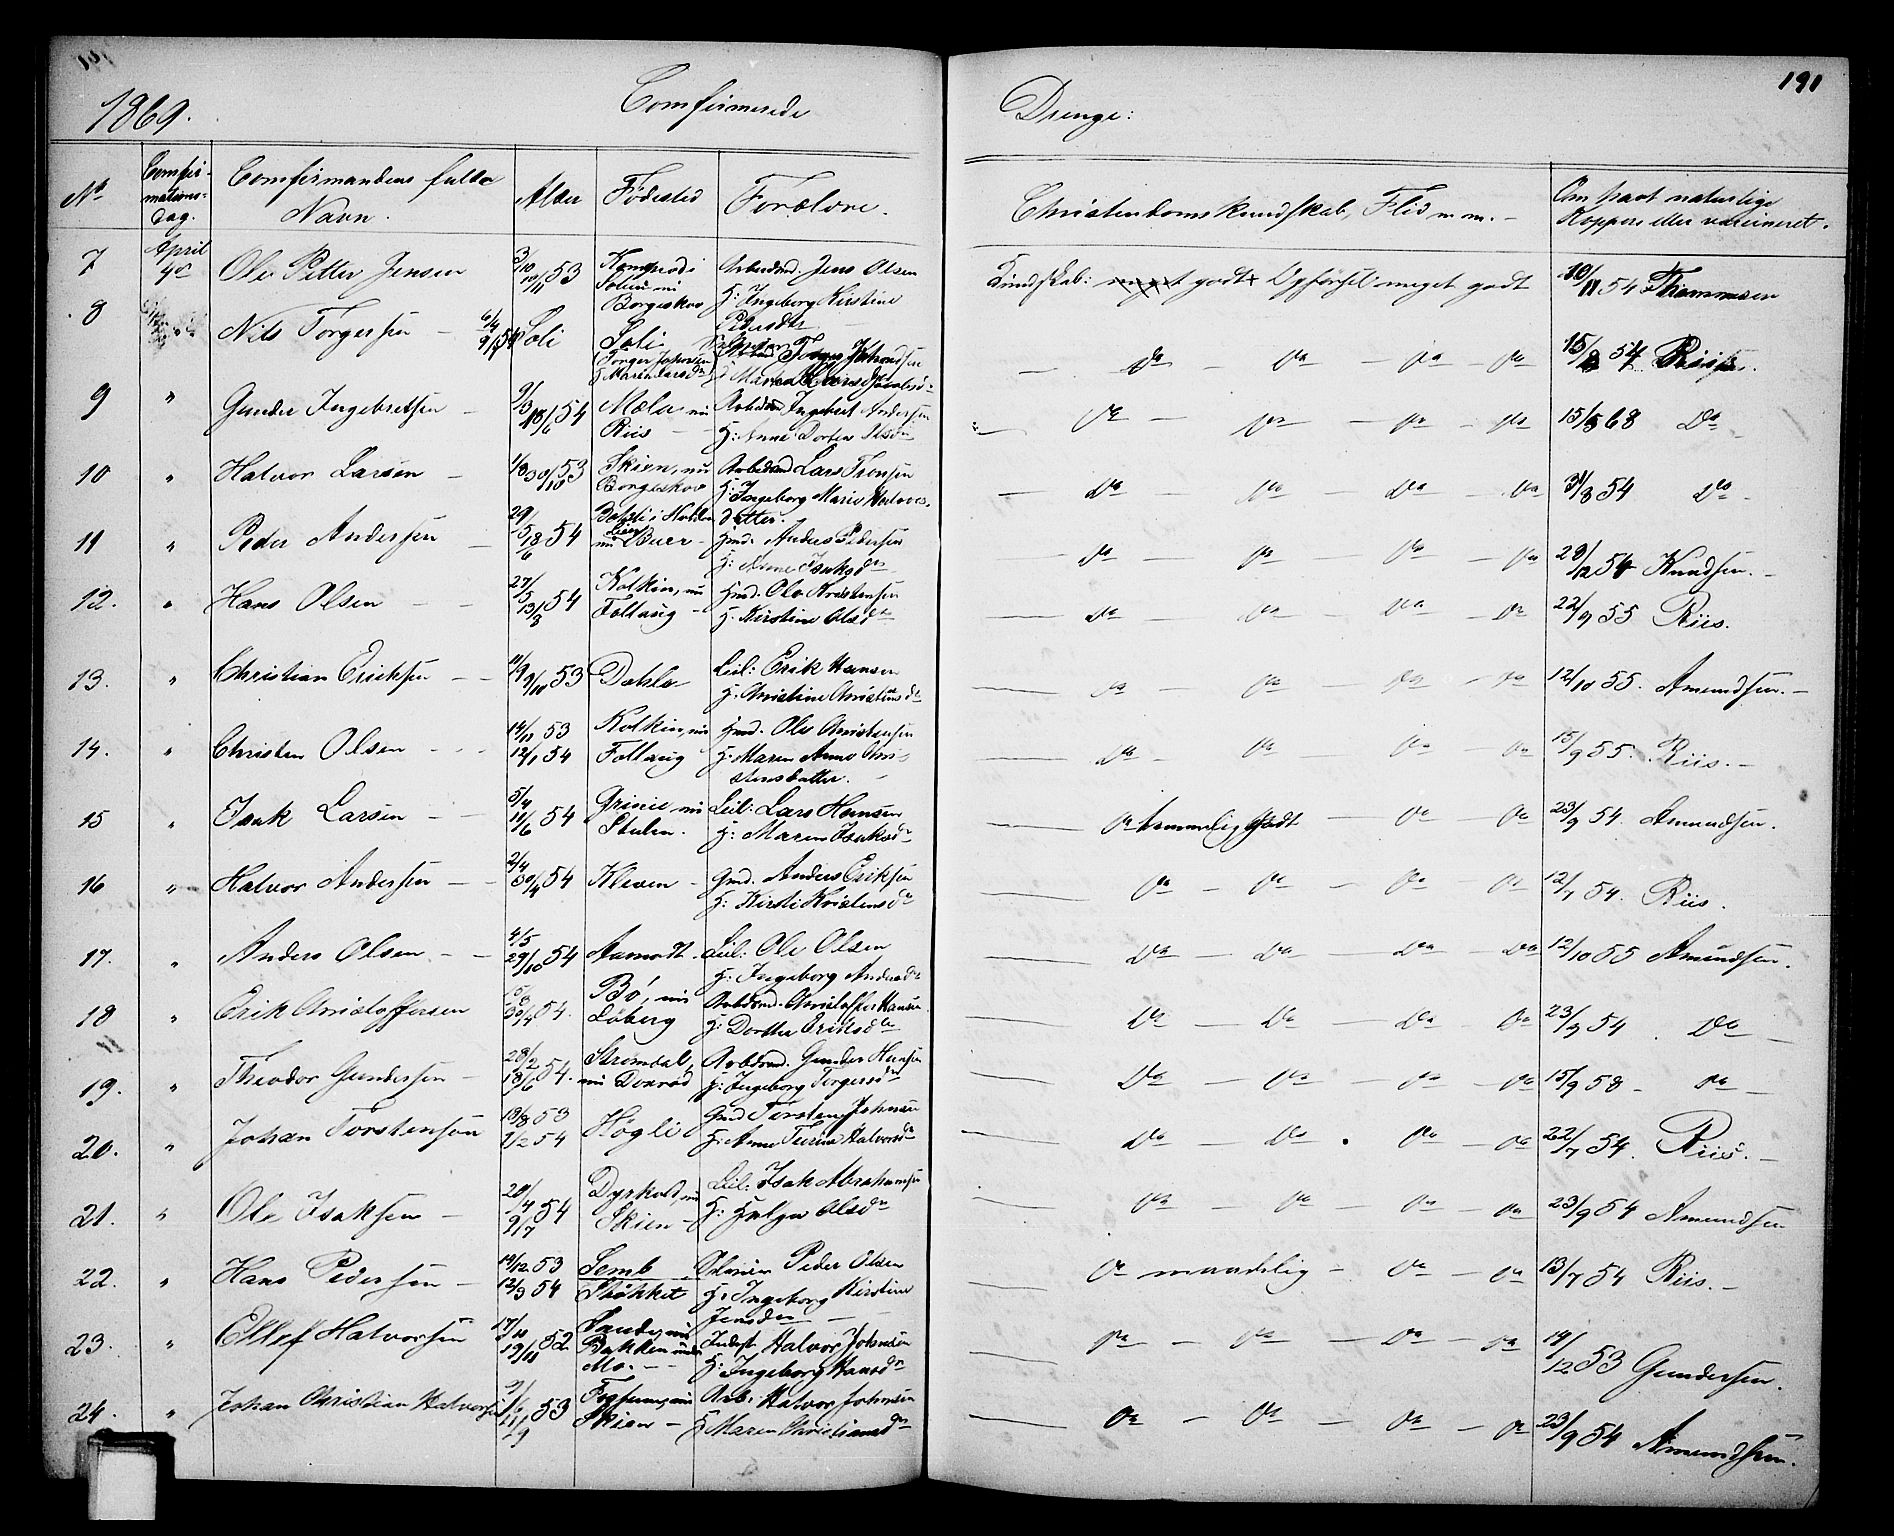 191
1869. Comfirmerede Drenge:
No Comfirmations-dag. Comfirmandens fulde Navn. Alder Fødested Forældre. Christendomskundskab, Flid m.m. Om havt naturlige Kopper eller vaccineret.
7 April 4de Ole Petter Jensen 3/10 10/11 53 nu Borgeskov Arbeidsmd. Jens Olsen H: Ingeborg Kirstine Pedersdtr Kundskab: godt Opførsel meget godt 10/11 54 Thommesen
8 Nils Torgersen 6/4 54 Soli Soli Torger Johansen Maren Larsdr Do Do Do Do 15/8 54 Riis
9 " Gunder Ingebretsen 9/3 18/6 54 Mæla nu Riis Arbeidsmd Ingebret Andersen H: Anne Dortea Do Do Do Do 15/5 68 Do
10 " Halvor Larsen 1/8 30/10 53 Skien, nu Borgeskov Arbeidsmd Lars H: Ingeborg Marie Halvorsdatter. Do Do Do Do 31/8 54 Do
11 " Peder Andersen 29/5 18/6 54 nu Buer Gmd. Anders Pedersen H: Anne Isaksdr Do Do Do Do 29/12 54 Knudsen.
12. " Hans Olsen 27/5 13/8 54 Kolkin, nu Foltaug Gmd. Ole Kristensen H: Kirstine Olsdr Do Do Do Do 22/9 55 Riis.
13. " Christian Eriksen 11/9 9/10 53 Dahle Leil: Erik Hansen H. Christine Christensdr Do Do Do Do 12/10 55. Amundsen.
14. " Christen Olsen 14/11 53 12/1 54 Kolkin, nu Foltaug Gmd. Ole Christensen H: Maren Anne Christensdatter. Do Do Do Do 15/9 55. Riis.
15 " Isak Larsen 5/4 11/6 54 Grinie nu Stulen. Leil: Lars Hansen H: Maren Isaksdr Do temmelig Godt Do Do 23/9 54. Amundsen.
16 " Halvor Andersen 2/4 30/4 54 Kleven Gmd. Anders Eriksen H: Kirsti Kristensdr Do Do Do Do 12/7 54. Riis.
17. " Anders Olsen 4/5 29/10 54 Aamodt Leil: Ole Olsen H: Ingeborg Andersdr Do Do Do Do 12/10 55 Amundsen.
18 " Erik Christoffersen 30/4 54. Bö, nu Løberg Arbdsmd. Christoffer Hansen H: Dorthe Eriksdr Do Do Do Do 23/9 54. Do
19. " Theodor Gundersen 28/2 18/6 54. Strømdal, nu Arbdsmd. Gunder Hansen H: Ingeborg Torgersdr Do Do Do Do 15/9 58 Do
20. " Johan Torstensen 18/8 53 2/2 54 Høgli Gmd Torsten Johnsen H: Anne Halvorsdr Do Do Do Do 22/7 54. Riis.
21. " Ole Isaksen 20/4 9/7 54 Dyrkold, nu Skien Leil: Isak Abrahamsen H: Helge Olsdr Do Do Do Do 23/9 54 Amundsen
22. " Hans Pedersen 19/12 53 12/3 54 Semb Støkket Peder Olsen H: Ingeborg Kirstine Jensdr Do maadelig Do Do 13/7 54 Riis.
23. " Ellef Halvorsen 17/10 19/11 52 Sande, nu Bakken under Mo. Inderst Halvor Johnsen H: Ingeborg Hansdr Do Do Do Do 19/12 53 Gundersen.
24. " Johan Christian Halvorsen 11/9 53 nu Skien Arb: Halvor Johnsen H Maren Christiansdr Do Do Do Do 23/9 54 Amundsen.